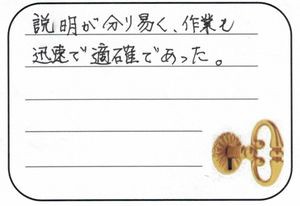 説明が分り易く、作業も
迅速で適確であった。